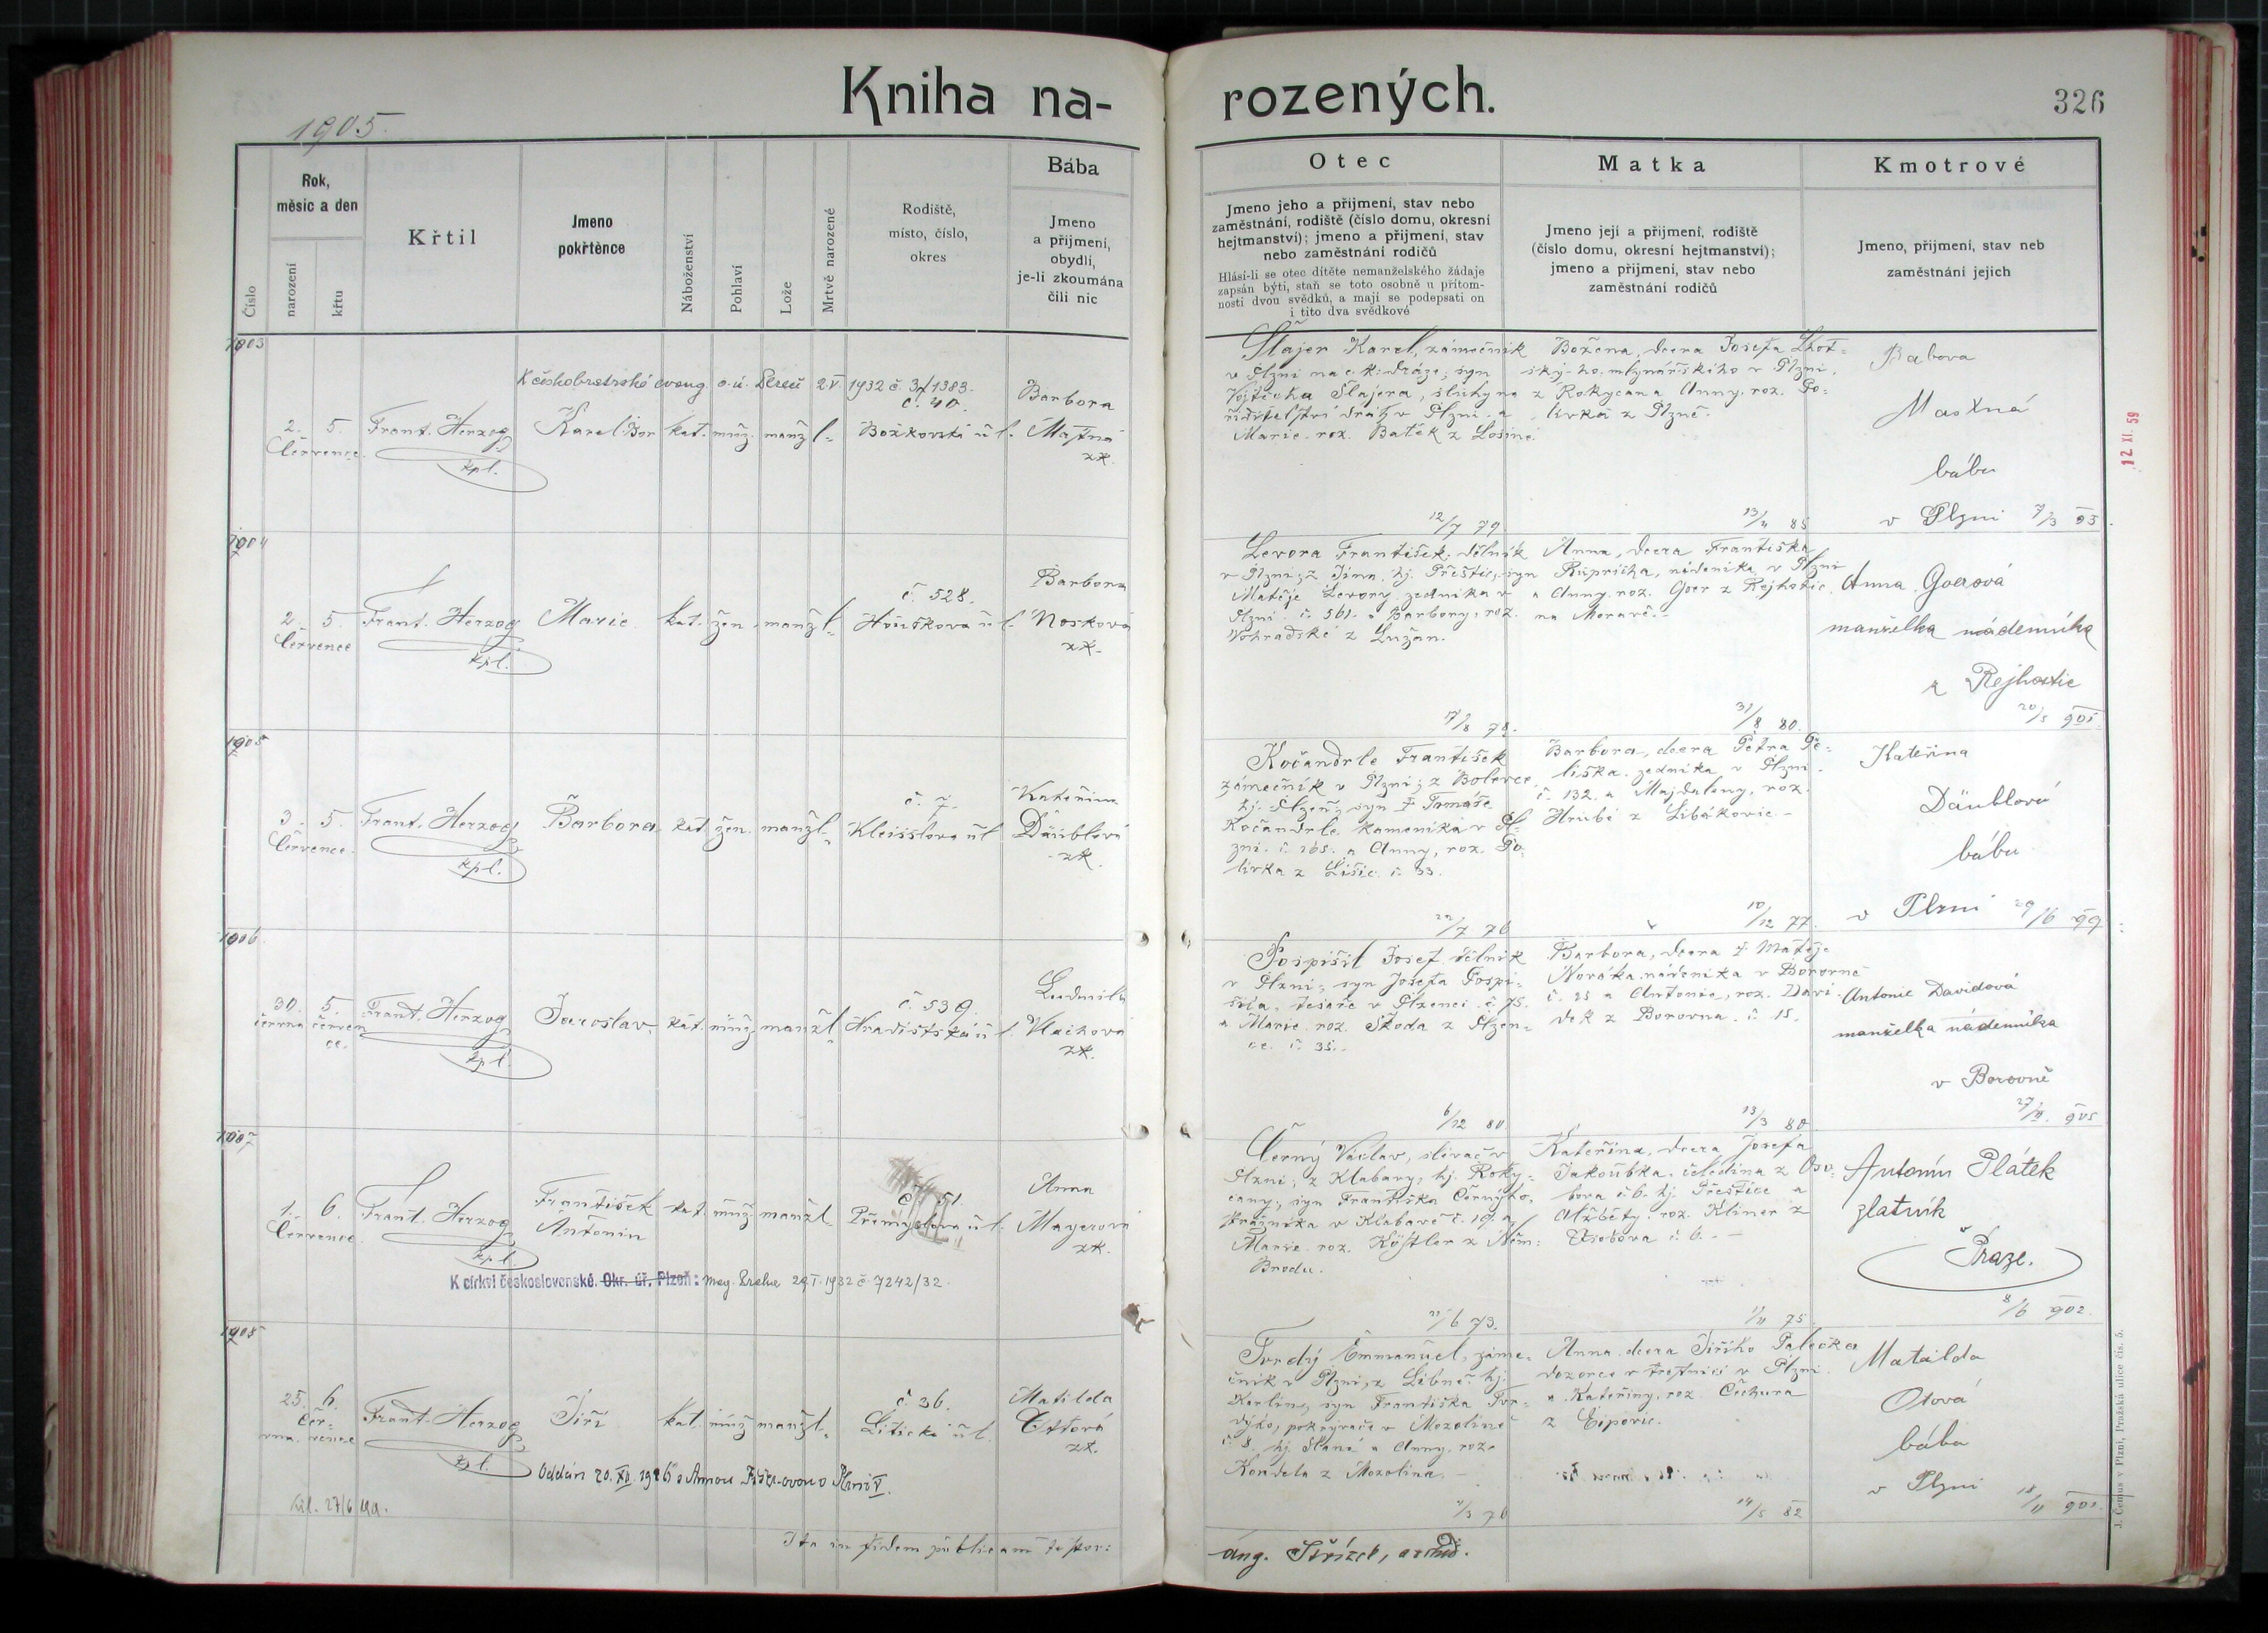 Kniha na-
rozených.
326
1905.
Číslo
Rok,
měsíc a den
narození
křtu
Křtil
Jmeno
pokřtěnce
Náboženství
Pohlaví
Lože
Mrtvě narozené
Rodiště,
místo, číslo,
okres
Bába
Jmeno
a přijmení,
obydlí,
je-li zkoumána
čili nic
Otec
Jmeno jeho a přijmení, stav nebo
zaměstnání, rodiště (číslo domu, okresní
hejtmanství); jmeno a přijmení, stav
nebo zaměstnání rodičů
Hlásí-li se otec dítěte nemanželského žádaje
zapsán býti, staň se toto osobně u přítom-
nosti dvou svědků, a mají se podepsati on
i tito dva svědkové
Matka
Jmeno její a přijmení, rodiště
(číslo domu, okresní hejtmanství);
jmeno a přijmení, stav nebo
zaměstnání rodičů
Kmotrové
Jmeno, přijmení, stav neb
zaměstnání jejich
1903
K českobratrské evang. 2.V. 1932 č. 1383.
2. 5.
Července
Frant. Herzog
kpl.
Karel Bor
kat. muž. manžl.
č. 40.
Božkovská ul.
Barbora
Mastná
zk.
Šlajer Karel, zámečník
v Plzni na c. k. dráze; syn
Vojtěcha Šlajera, sluhy na
ředitelství drah v Plzni a
Marie roz. Baték z Losiné
12/7 79.
Božena, dcera Josefa
mlynářského v Plzni,
z Rokycan a Anny, roz. Po-
lívka z Plzně.
85
Babora
Mastná
bába
v Plzni 7/3 93
12 XI. 59
1904
2. 5.
Července
Frant. Herzog
kpl.
Marie
kat. žen. manžl.
č. 528.
Houškova ul.
Barbora
Nosková
zk.
Levora František, dělník
v Plzni; z Jinn, hj. Přeštic, syn
Matěje Levory, zedníka v
Plzni č. 561. a Barbory, roz.
Vohradské z Lužan.
17/8 79.
Anna, dcera Františka
Rupricha, nádeníka v Plzni
a Anny, roz. Goer z Rejhotic
na Moravě.
31/8 80.
Anna Goerová
manželka nádeníka
z Rejhotic
20/5 905
1905
3. 5.
Července
Frant. Herzog
kpl.
Barbora
kat. žen. manžl.
č. 7.
Kleisslova ul.
Kateřina
Däublová
zk.
Kočandrle František
zámečník v Plzni; z Bolevce
hj. Plzeň, syn † Tomáše
Kočandrle, kameníka v Pl-
zni č. 265. a Anny, roz. Po-
lívka z Lišic č. 33.
22/7 76
Barbora, dcera Petra Pe-
liška, zedníka v Plzni
č. 132. a Majdaleny, roz.
Hrubé z Libákovic.
10/12 77.
Kateřina
Däublová
bába
v Plzni 29/6 99
1906
30. 5.
června červen
ce.
Frant. Herzog
kpl.
Jaroslav
kat. muž. manžl.
č. 539.
Hradištská ul.
Ludmila
Vlachová
zk.
Pospíšil Josef, dělník
v Plzni, syn Josefa Pospí-
šila, tesaře v Plzenci č. 75.
a Marie roz. Škoda z Plzen-
ce č. 35.
6/12 80
Barbora, dcera † Matěje
Nováka, nádeníka v Borovně
č. 25 a Antonie, roz. Davi-
dek z Borovna č. 15.
13/3 80
Antonie Davidová
manželka nádeníka
v Borovně
905
1907
1. 6.
Července
Frant. Herzog
kpl.
František
Antonín
kat. muž. manžl.
č. 51.
Přemyslova ul.
Anna
Mayerová
zk.
K církvi československé. Okr. úř. Plzeň: mag. Praha 29.I.1932 č. 7242/32.
Černý Václav, slévač v
Plzni; z Klabavy, hj. Roky-
cany, syn Františka Černýho,
strážníka v Klabavě č. 19. a
Marie roz. Köstler z Něm.
Brodu.
6 73.
Kateřina, dcera Josefa
Jakoubka, čeledína z Oso-
bova č. 6. hj. Přeštice a
Alžběty, roz. Kliner z
Osobova č. 6.
75.
Antonín Plátek
zlatník
v Praze.
8/6 902.
1908
25. 6.
Čer- 
vna. vence
Frant. Herzog
kpl.
Jiří
kat. muž. manžl.
č. 36.
Litická ul.
Matilda
Ottová
zk.
Oddán 20.XII.1926 s Annou v Plzni V.
27/6
Tvrdý Emmanuel, záme-
čník v Plzni, z Libně hj.
Karlín, syn Františka Tvr-
dýho, pokrývače v Mozolíně
č. 8. hj. Slaná a Anny, roz.
Kondela z Mozolína.
76
Anna, dcera Jiřího Palečka
dozorce v trestnici v Plzni
a Kateřiny, roz. Čechura
z Ejpovic.
14/5 82
Matilda
Otová
bába
v Plzni
Ita in fidem publicam testor:
Aug. Střízek, archid.
J. Čemus v Plzni, Pražská ulice čís. 5.